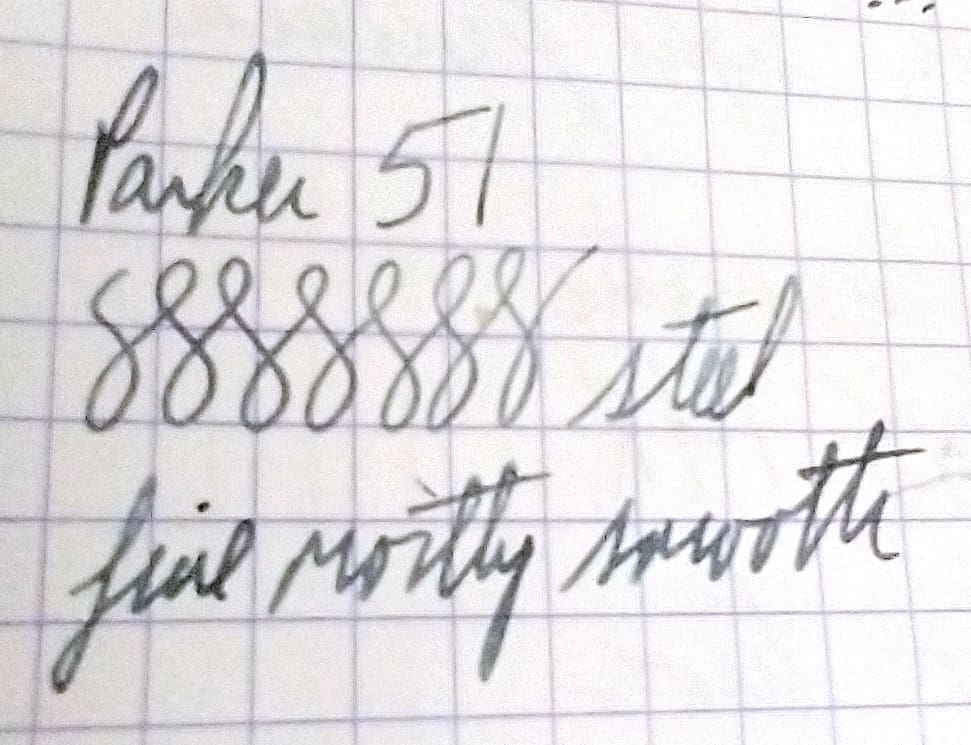 Parker 51
8888888 steel
fine mostly smooth